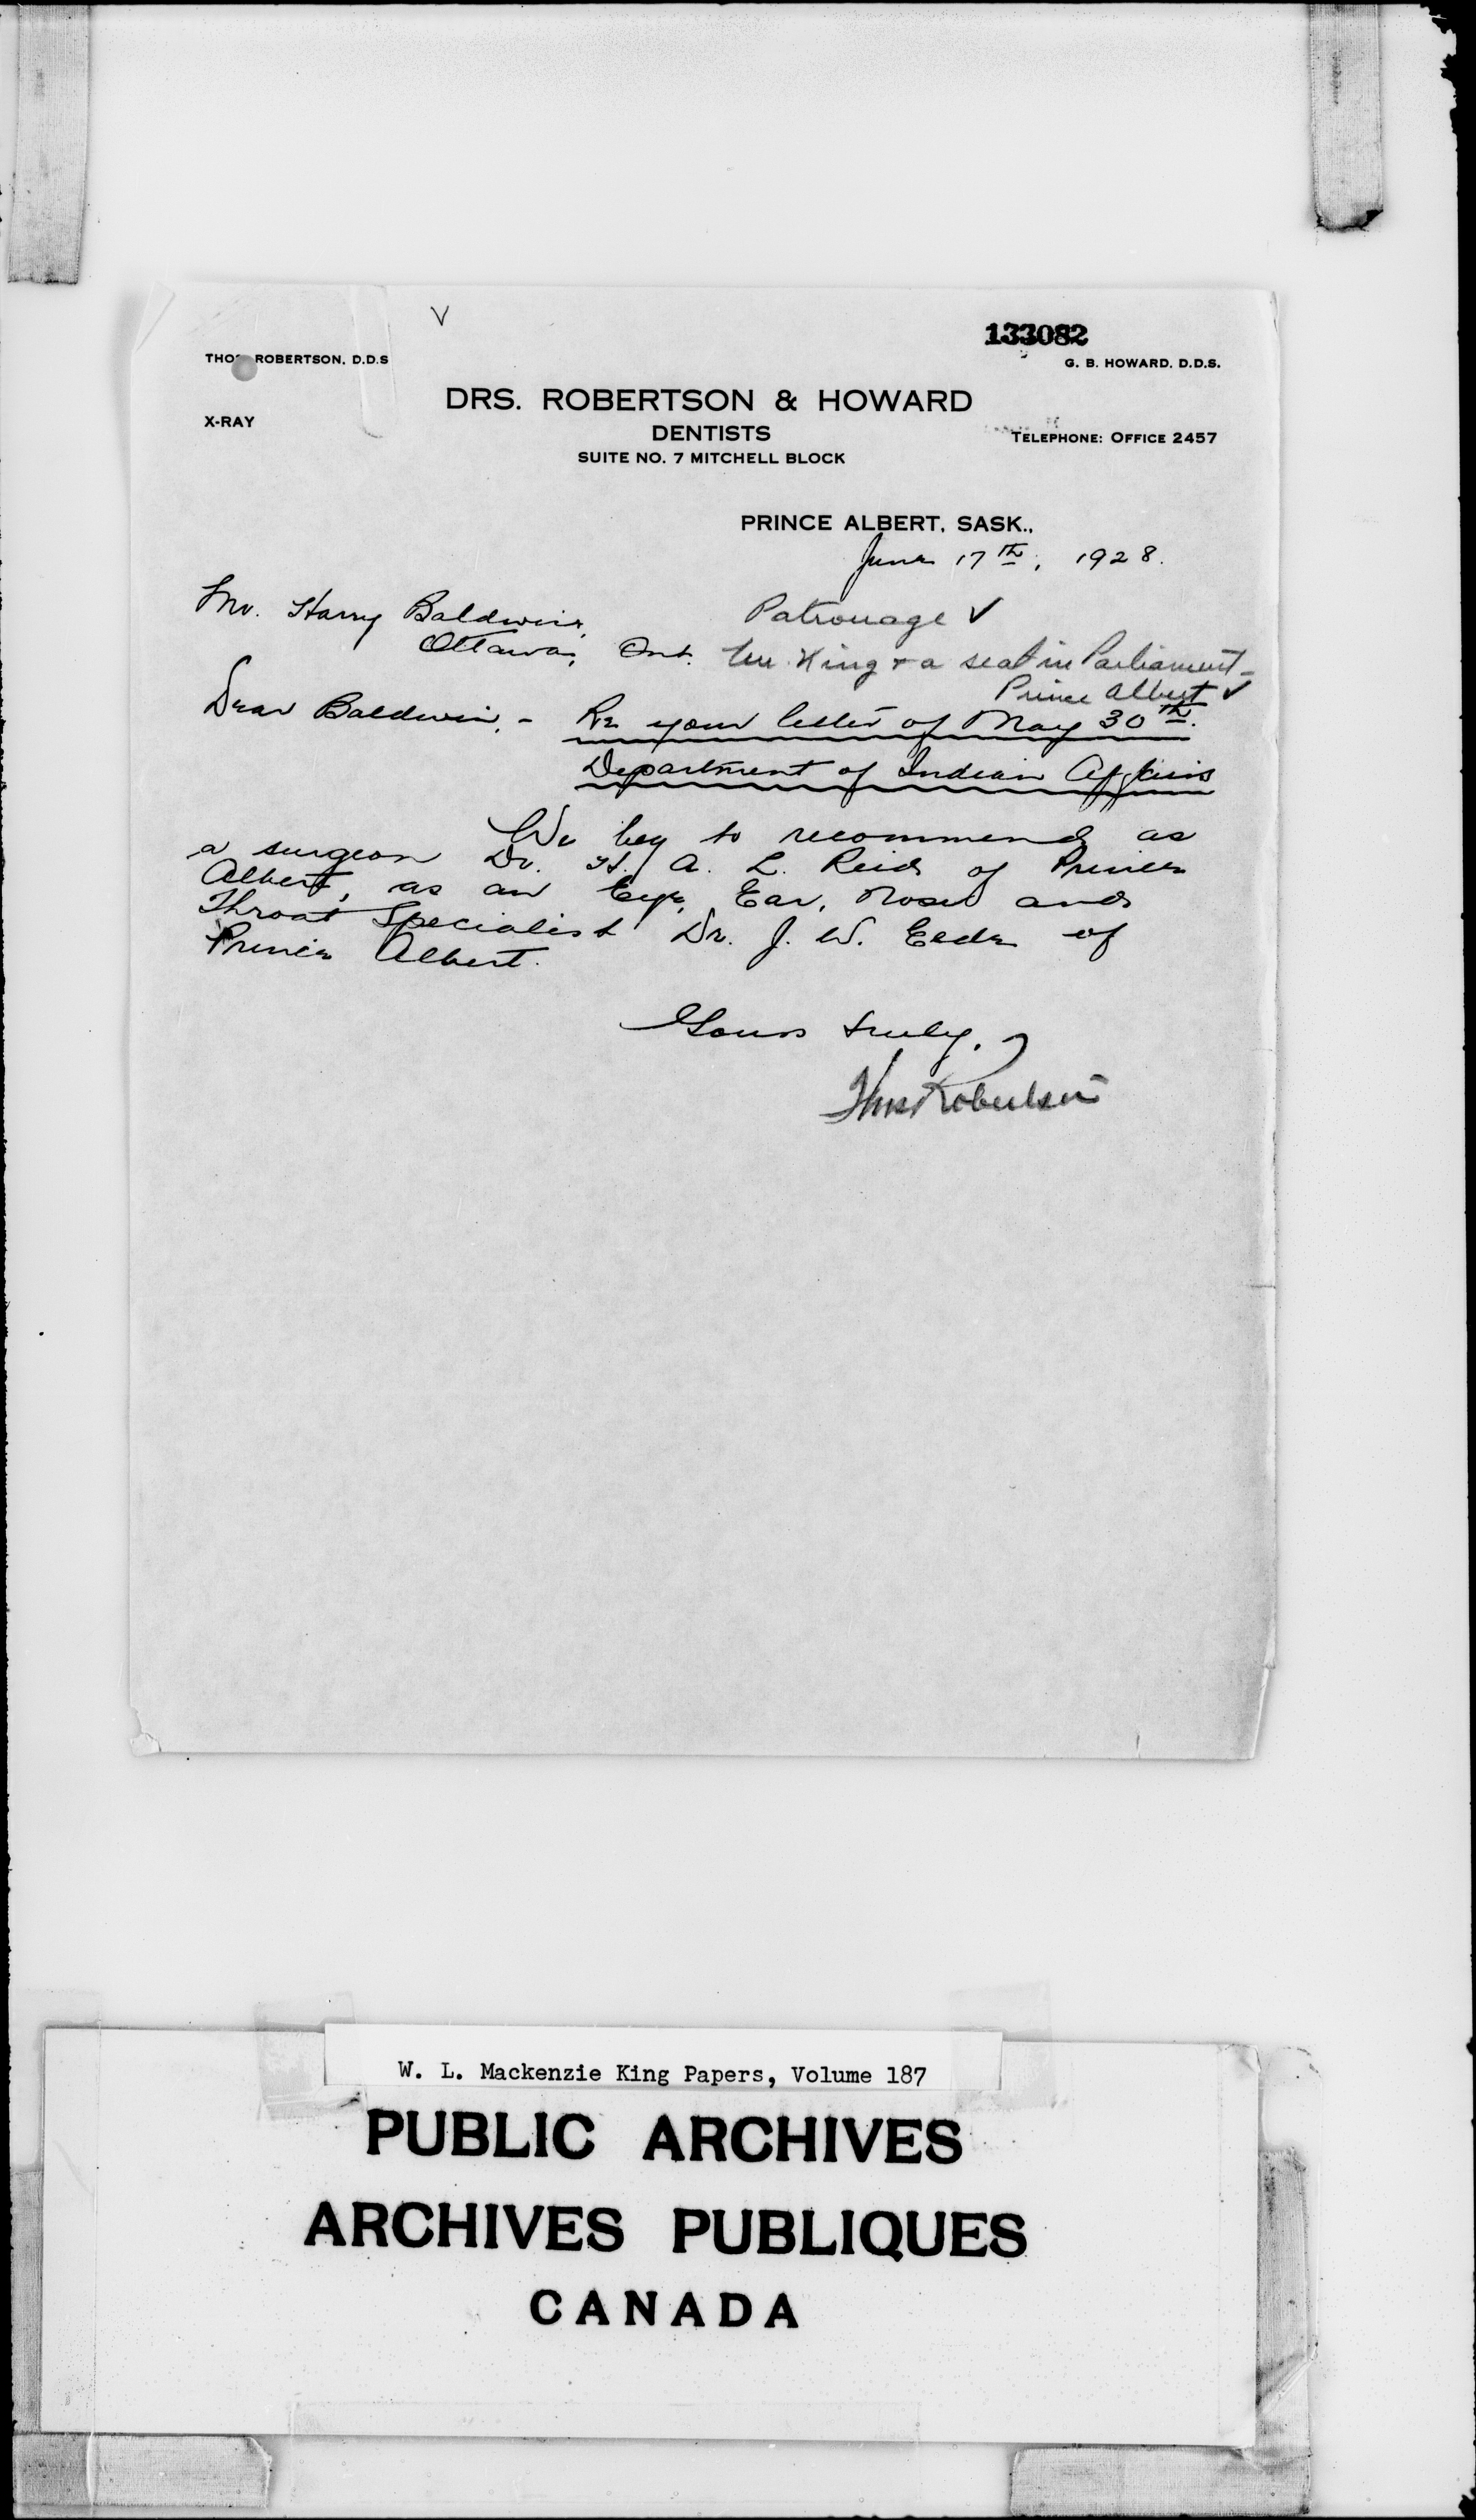 133082
THOS ROBERTSON, D.D.S
G. B. HOWARD, D.D.S.
DRS. ROBERTSON & HOWARD
X-RAY
DENTISTS
TELEPHONE: OFFICE 2457
SUITE NO. 7 MITCHELL BLOCK
PRINCE ALBERT, SASK.,
June 17th, 1928.
Mr. Harry Baldwin,
Patronage ✓
Ottawa, Ont.
Mr King & a seat in Parliament -
Prince Albert ✓
Dear Baldwin, - Re your letter of May 30th.
Department of Indian Affairs
We beg to recommend as
a surgeon Dr. H. A. L. Reid of Prince
Albert, as an Eye, Ear, Nose and
Throat Specialist Dr. J. W. of
Prince Albert.
Yours truly,
Thos Robertson
W. L. Mackenzie King Papers, Volume 187
PUBLIC ARCHIVES
ARCHIVES PUBLIQUES
CANADA